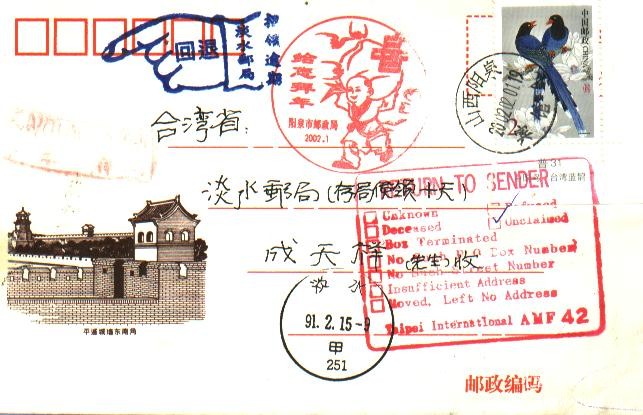 回退
淡水郵局
招領逾期
给您拜年
阳泉市邮政局
2002.1
山西阳泉
中国邮政
CHINA
台湾省:
淡水郵局(存局候領十天)
普31
台湾蓝鹊
RETURN TO SENDER
Unknown
Refused
Deceased
Unclaimed
Box Terminated
No Such P O Box Number
No Such Street Number
Insufficient Address
Moved, Left No Address
Taipei International AMF 42
(先生)收
淡水
91.2.15-9
甲
251
平遥城墙东南角
邮政编码